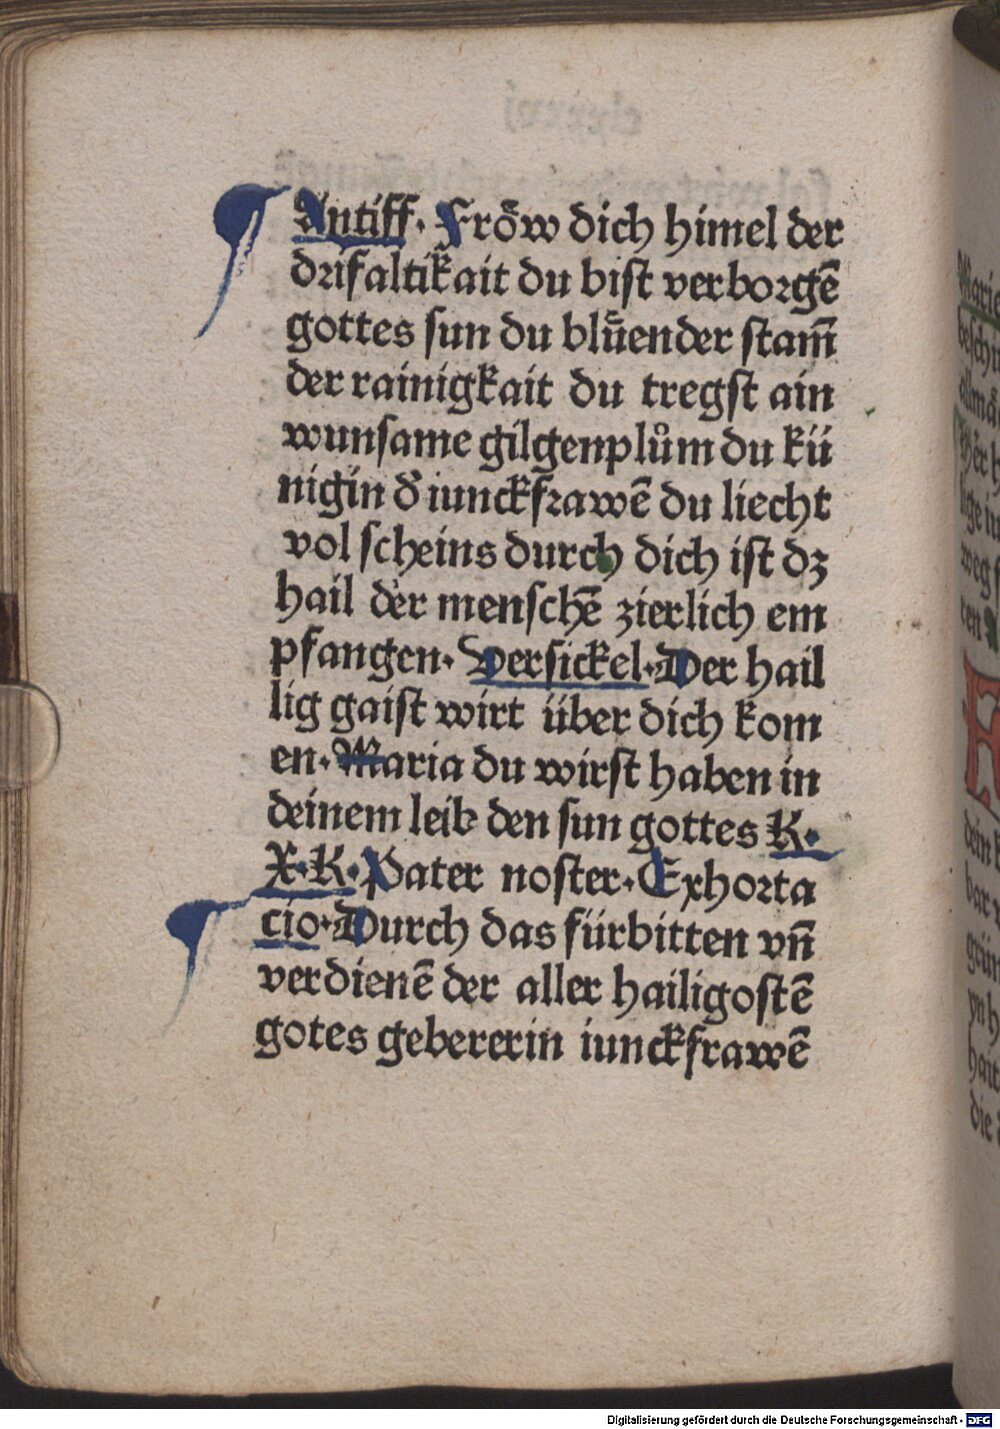 Antiff. Frőw dich himel der
drifaltikait du bist verborgē
gottes sun du blűender stam̄
der rainigkait du tregst ain
wunsame gilgenplům du kü
nigin d̕ iunckfrawē du liecht
vol scheins durch dich ist dz
hail der menschē zierlich em
pfangen. Versickel. Der hail
lig gaist wirt über dich kom
en. Maria du wirst haben in
deinem leib den sun gottes K.
X. K. Pater noster. Exhorta
cio. Durch das fürbitten vn̄
verdienē der aller hailigostē
gotes gebererin iunckfrawē
Digitalisierung gefördert durch die Deutsche Forschungsgemeinschaft - DFG